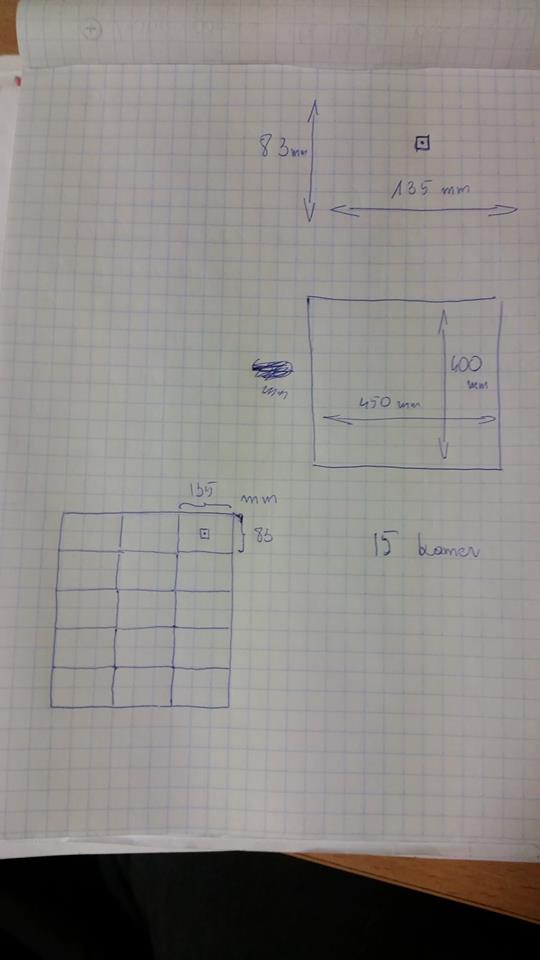 83 mm
135 mm
400
mm
450 mm
mm
135 mm
83
15 kamer